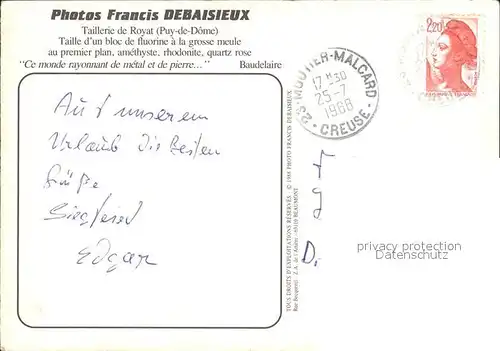 Photos Francis DEBAISIEUX
Taillerie de Royat (Puy-de-Dôme)
Taille d'un bloc de fluorine à la grosse meule
au premier plan, améthyste, rhodonite, quartz rose
"Ce monde rayonnant de métal et de pierre..." Baudelaire
Aus unserem
Urlaub die Besten
Grüße
Siegfried
Edgar
TOUS DROITS D'EXPLOITATIONS RÉSERVÉS - © 1986 PHOTO FRANCIS DEBAISIEUX
Rue Bocquerel - Z.A. de l'Artière - 63110 BEAUMONT
23 - MOUTIER-MALCARD
17 H 30
25-7
1988
CREUSE
2,20
F
D.
privacy protection